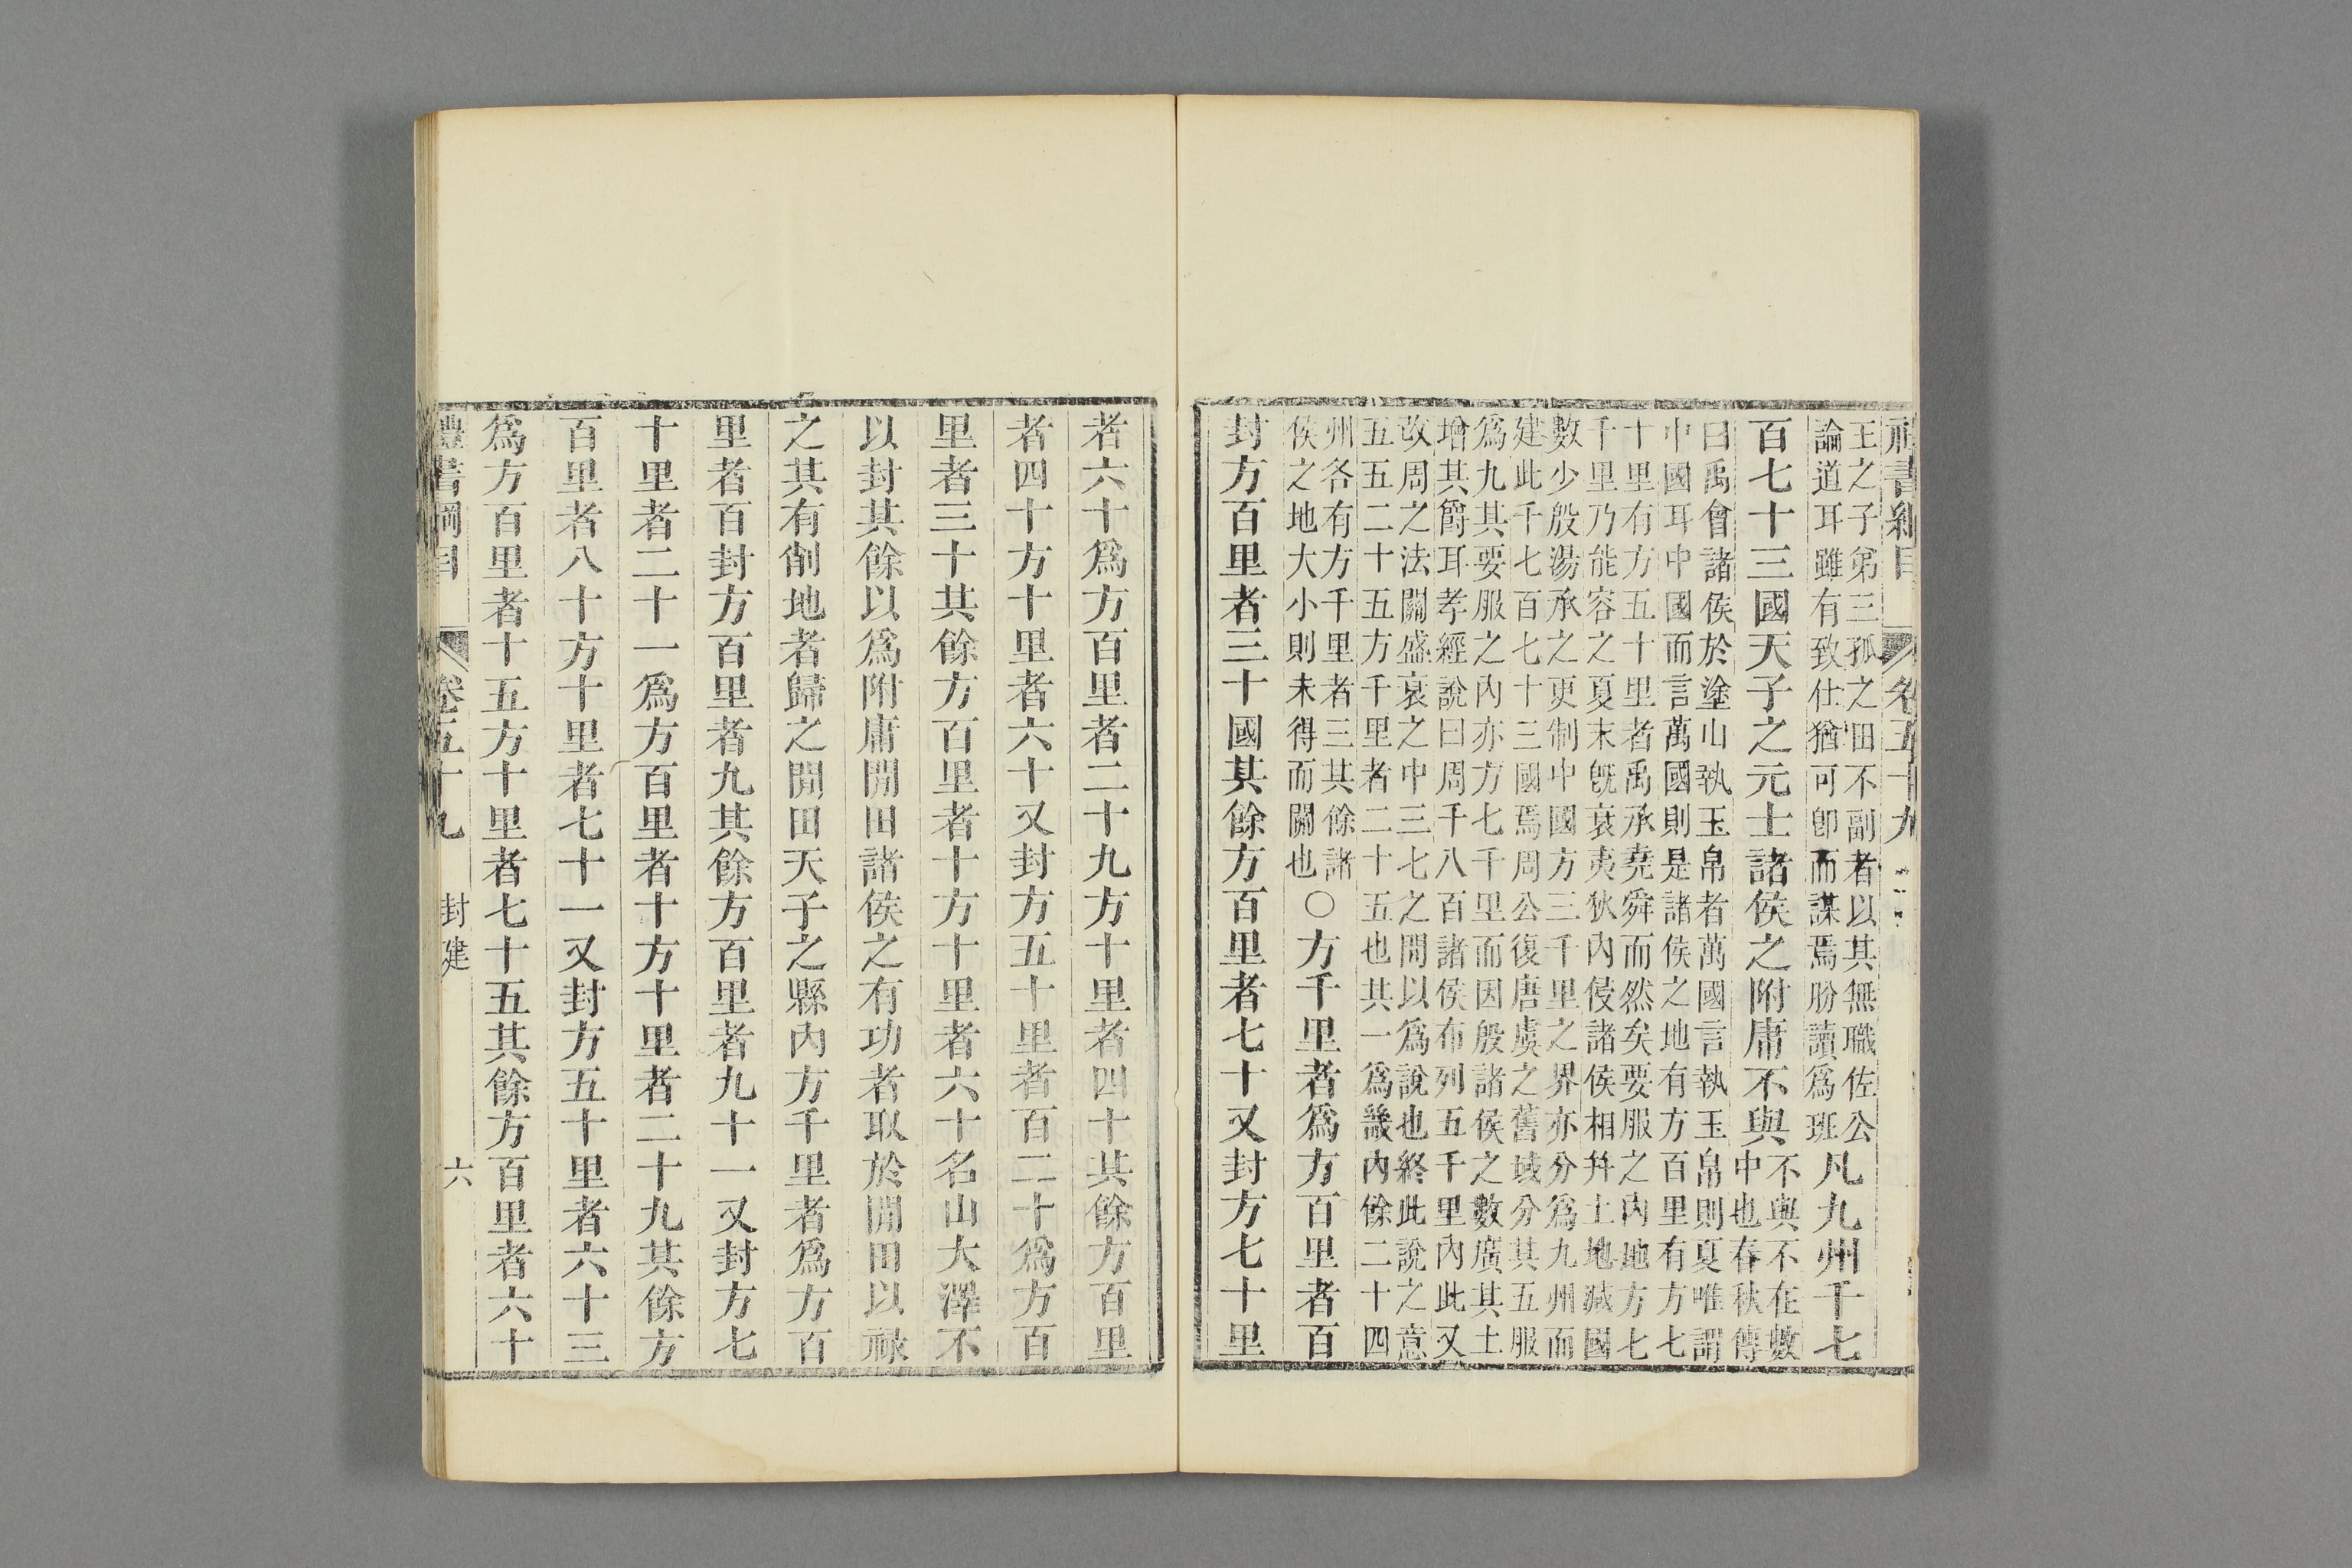 禮書綱目 卷五十九
王之子弟三孤之田不副者以其無職佐公
論道耳雖有致仕猶可卽而謀焉肦讀爲班
凡九州千七
百七十三國天子之元士諸侯之附庸不與
不與不在數
中也春秋傳
曰禹會諸侯於塗山執玉帛者萬國言執玉帛則夏唯謂
中國耳中國而言萬國則是諸侯之地有方百里有方七
十里有方五十里者禹承堯舜而然矣要服之內地方七
千里乃能容之夏末旣衰夷狄內侵諸侯相幷土地減國
數少殷湯承之更制中國方三千里之界亦分爲九州而
建此千七百七十三國焉周公復唐虞之舊域分其五服
爲九其要服之內亦方七千里而因殷諸侯之數廣其土
增其爵耳孝經說曰周千八百諸侯布列五千里內此又
改周之法關盛衰之中三七之閒以爲說也終此說之意
五五二十五方千里者二十五也其一爲畿內餘二十四
州各有方千里者三其餘諸
侯之地大小則未得而關也
○方千里者爲方百里者百
封方百里者三十國其餘方百里者七十又封方七十里
者六十爲方百里者二十九方十里者四十其餘方百里
者四十方十里者六十又封方五十里者百二十爲方百
里者三十其餘方百里者十方十里者六十名山大澤不
以封其餘以爲附庸閒田諸侯之有功者取於閒田以祿
之其有削地者歸之閒田天子之縣內方千里者爲方百
里者百封方百里者九其餘方百里者九十一又封方七
十里者二十一爲方百里者十方十里者二十九其餘方
百里者八十方十里者七十一又封方五十里者六十三
爲方百里者十五方十里者七十五其餘方百里者六十
禮書綱目 卷五十九 封建 六